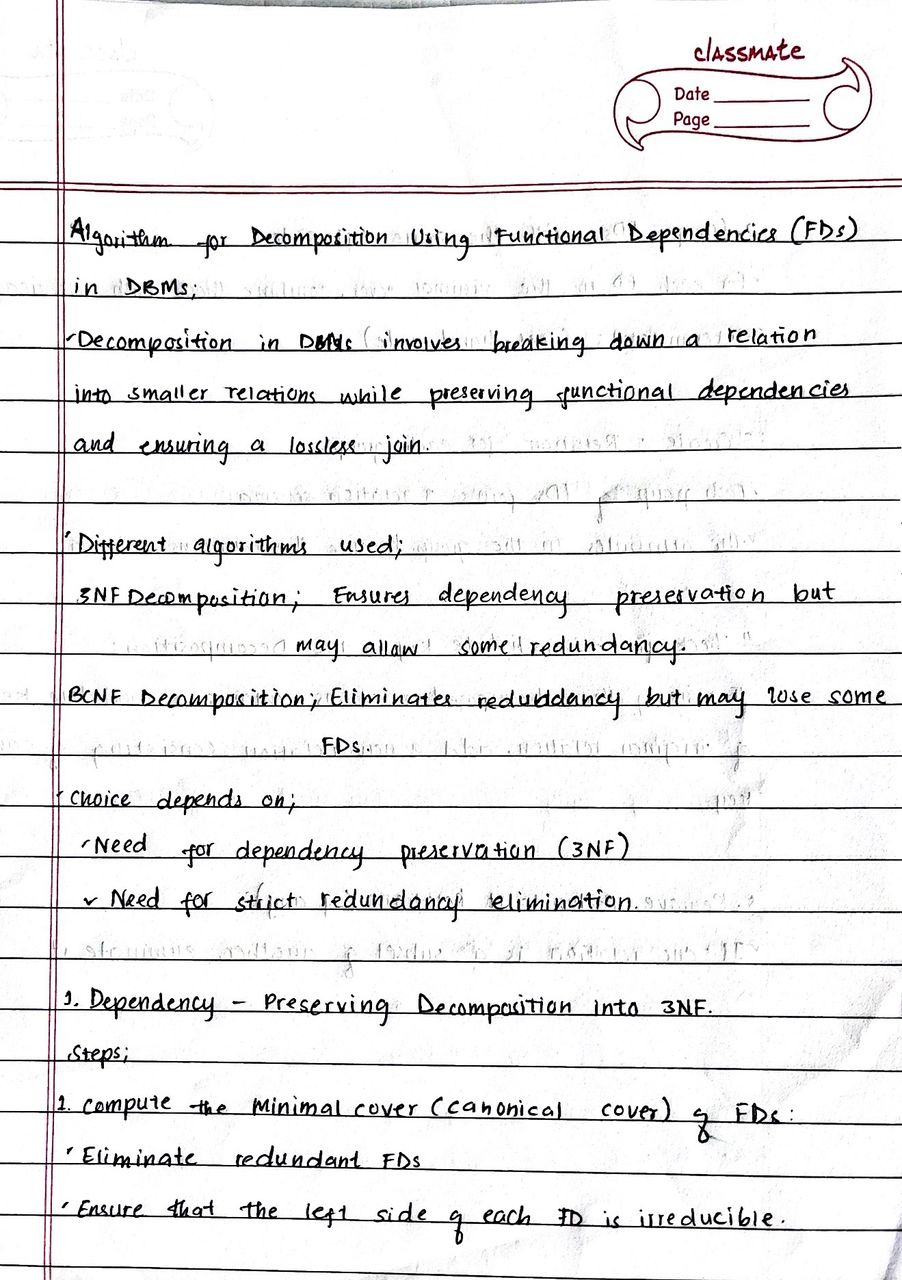 classmate
Date
Page
Algorithm for Decomposition Using Functional Dependencies (FDs)
in DBMs;
Decomposition in DBMs involves breaking down a relation
into smaller relations while preserving functional dependencies
and ensuring a lossless join.
Different algorithms used;
3NF Decomposition; Ensures dependency preservation but
may allow some redundancy.
BCNF Decomposition; Eliminates reduddancy but may lose some
FDs.
Choice depends on;
Need for dependency preservation (3NF)
Need for strict redundancy elimination.
1. Dependency - Preserving Decomposition into 3NF.
Steps;
1. Compute the Minimal cover (canonical cover) of FDs:
Eliminate redundant FDs
Ensure that the left side of each FD is irreducible.